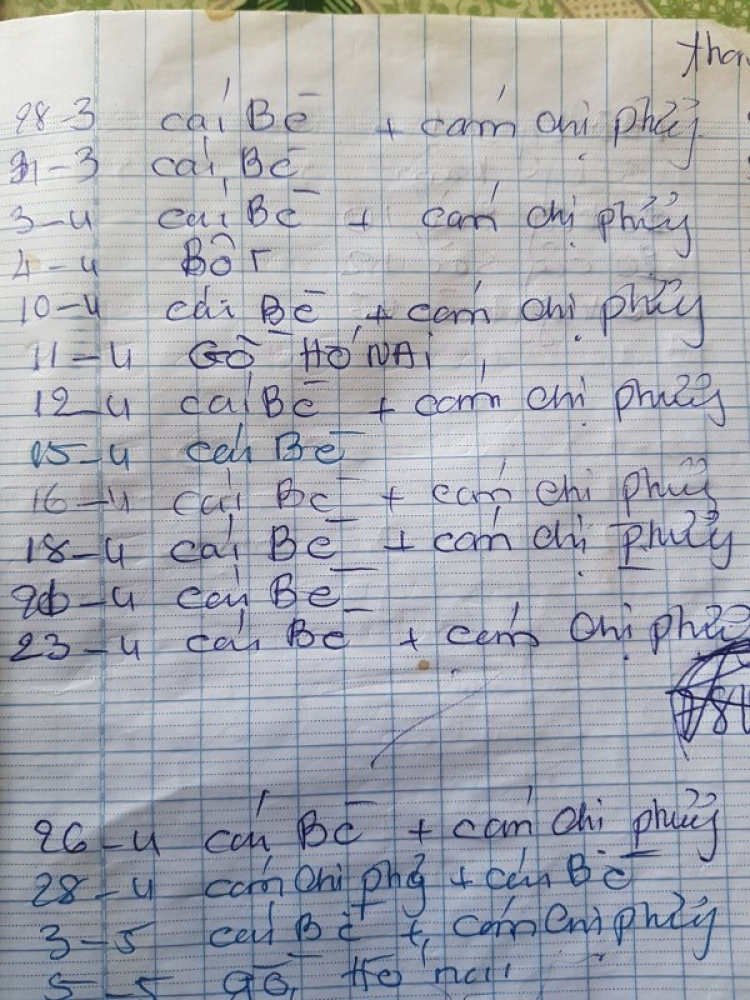 28-3 cái Bè + cám chị phủy
31-3 cái Bè
3-4 cái Bè + cám chị phủy
4-4 Bột
10-4 cái Bè + cám chị phủy
11-4 Gỗ Hố NAi
12-4 cái Bè + cám chị phủy
15-4 cái Bè
16-4 cái Bè + cám chị phủy
18-4 cái Bè + cám chị phủy
20-4 cái Bè
23-4 cái Bè + cám chị
26-4 cái Bè + cám chị phủy
28-4 cám chị phủy + cái Bè
3-5 cái Bè + cám chị phủy
5-5 gỗ Hố nai